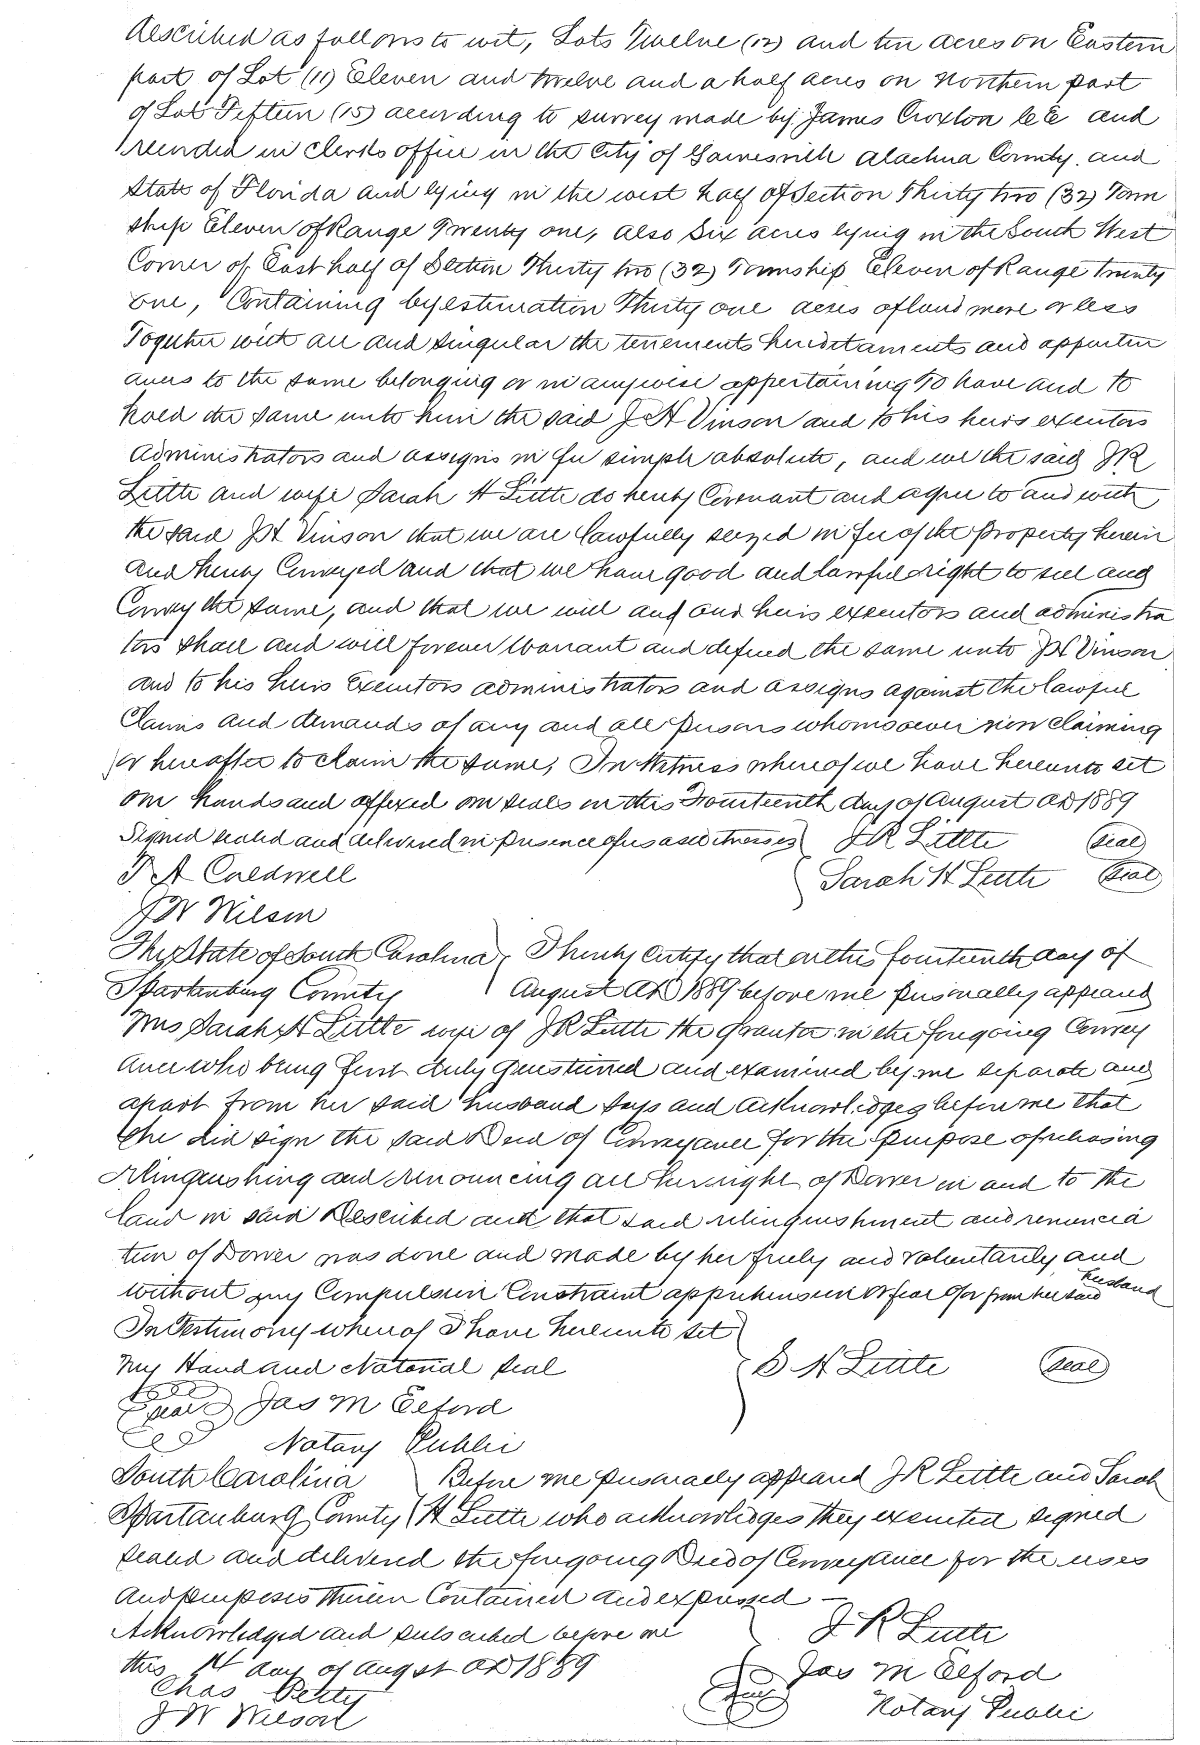 described as follows to wit, Lots Twelve (12) and ten acres on Eastern
part of Lot (11) Eleven and twelve and a half acres on Northern part
of Lot Fifteen (15) according to survey made by James Croxton C.E. and
recorded in clerks office in the City of Gainesville Alachua County and
State of Florida and lying in the west half of Section Thirty two (32) Town
ship Eleven of Range Twenty one, also Six acres lying in the South West
Corner of East half of Section Thirty two (32) Township Eleven of Range twenty
one, Containing by estimation Thirty one acres of land more or less
Together with all and singular the tenements hereditaments and appurten
ances to the same belonging or in anywise appertaining To have and to
hold the same unto him the said J H Vinson and to his heirs executors
administrators and assigns in fee simple absolute, and we the said J R
Little and wife Sarah H Little do hereby Covenant and agree to and with
the said J H Vinson that we are lawfully seized in fee of the property herein
and hereby Conveyed and that we have good and lawful right to sell and
Convey the same, and that we will and our heirs executors and administra
tors shall and will forever Warrant and defend the same unto J H Vinson
and to his heirs Executors administrators and assigns against the lawful
Claims and demands of any and all persons whomsoever now claiming
or hereafter to claim the same, In Witness whereof we have hereunto set
our hands and affixed our seals on this Fourteenth day of August AD 1889
Signed sealed and delivered in presence of us as witnesses J R Little (seal)
T A Caldwell Sarah H Little (seal)
J W Wilson
The State of South Carolina I hereby certify that on this fourteenth day of
Spartanburg County August AD 1889 before me personally appeared
Mrs Sarah H Little wife of J R Little the Grantor in the foregoing Convey
ance who being first duly questioned and examined by me separate and
apart from her said husband says and acknowledges before me that
she did sign the said Deed of Conveyance for the purpose of releasing
relinquishing and renouncing all her right of Dower in and to the
land in said Described and that said relinquishment and renuncia
tion of Dower was done and made by her freely and voluntarily and
without any Compulsion Constraint apprehension or fear of or from her said husband
In Testimony whereof I have hereunto set
my Hand and Notarial seal S H Little (seal)
(seal) Jas M Elford
Notary Public
South Carolina Before me personally appeared J R Little and Sarah
Spartanburg County H Little who acknowledges they executed signed
sealed and delivered the foregoing Deed of Conveyance for the uses
and purposes therein Contained and expressed —
Acknowledged and subscribed before me J R Little
this 14 day of Augst AD 1889 Jas M Elford
Chas Petty (seal) Notary Public
J W Wilson